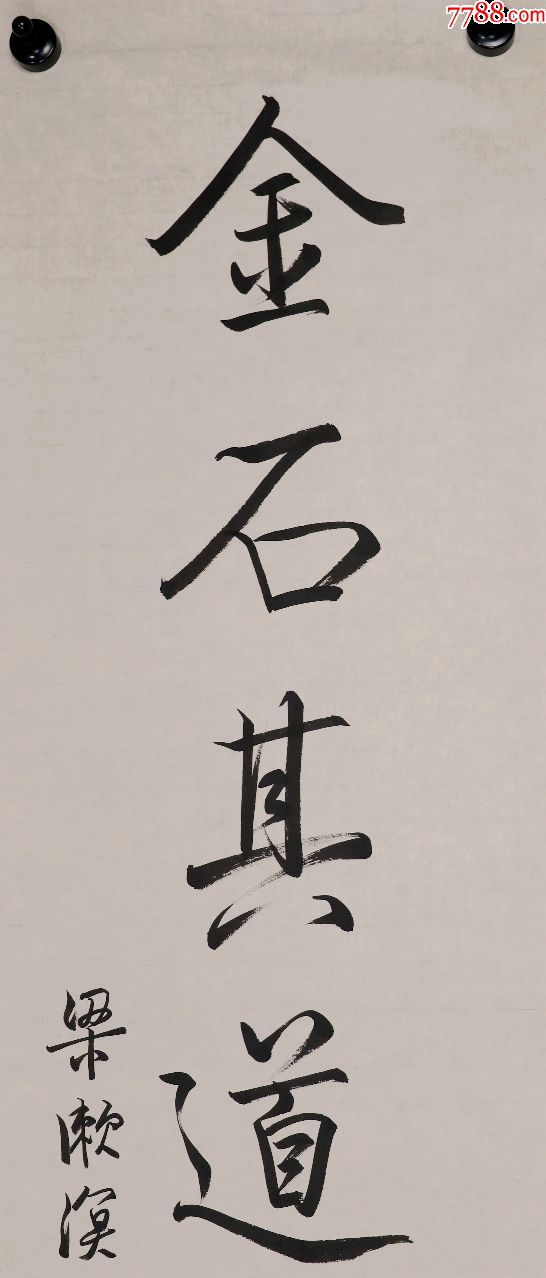 7788.com
金石其道
梁漱溟